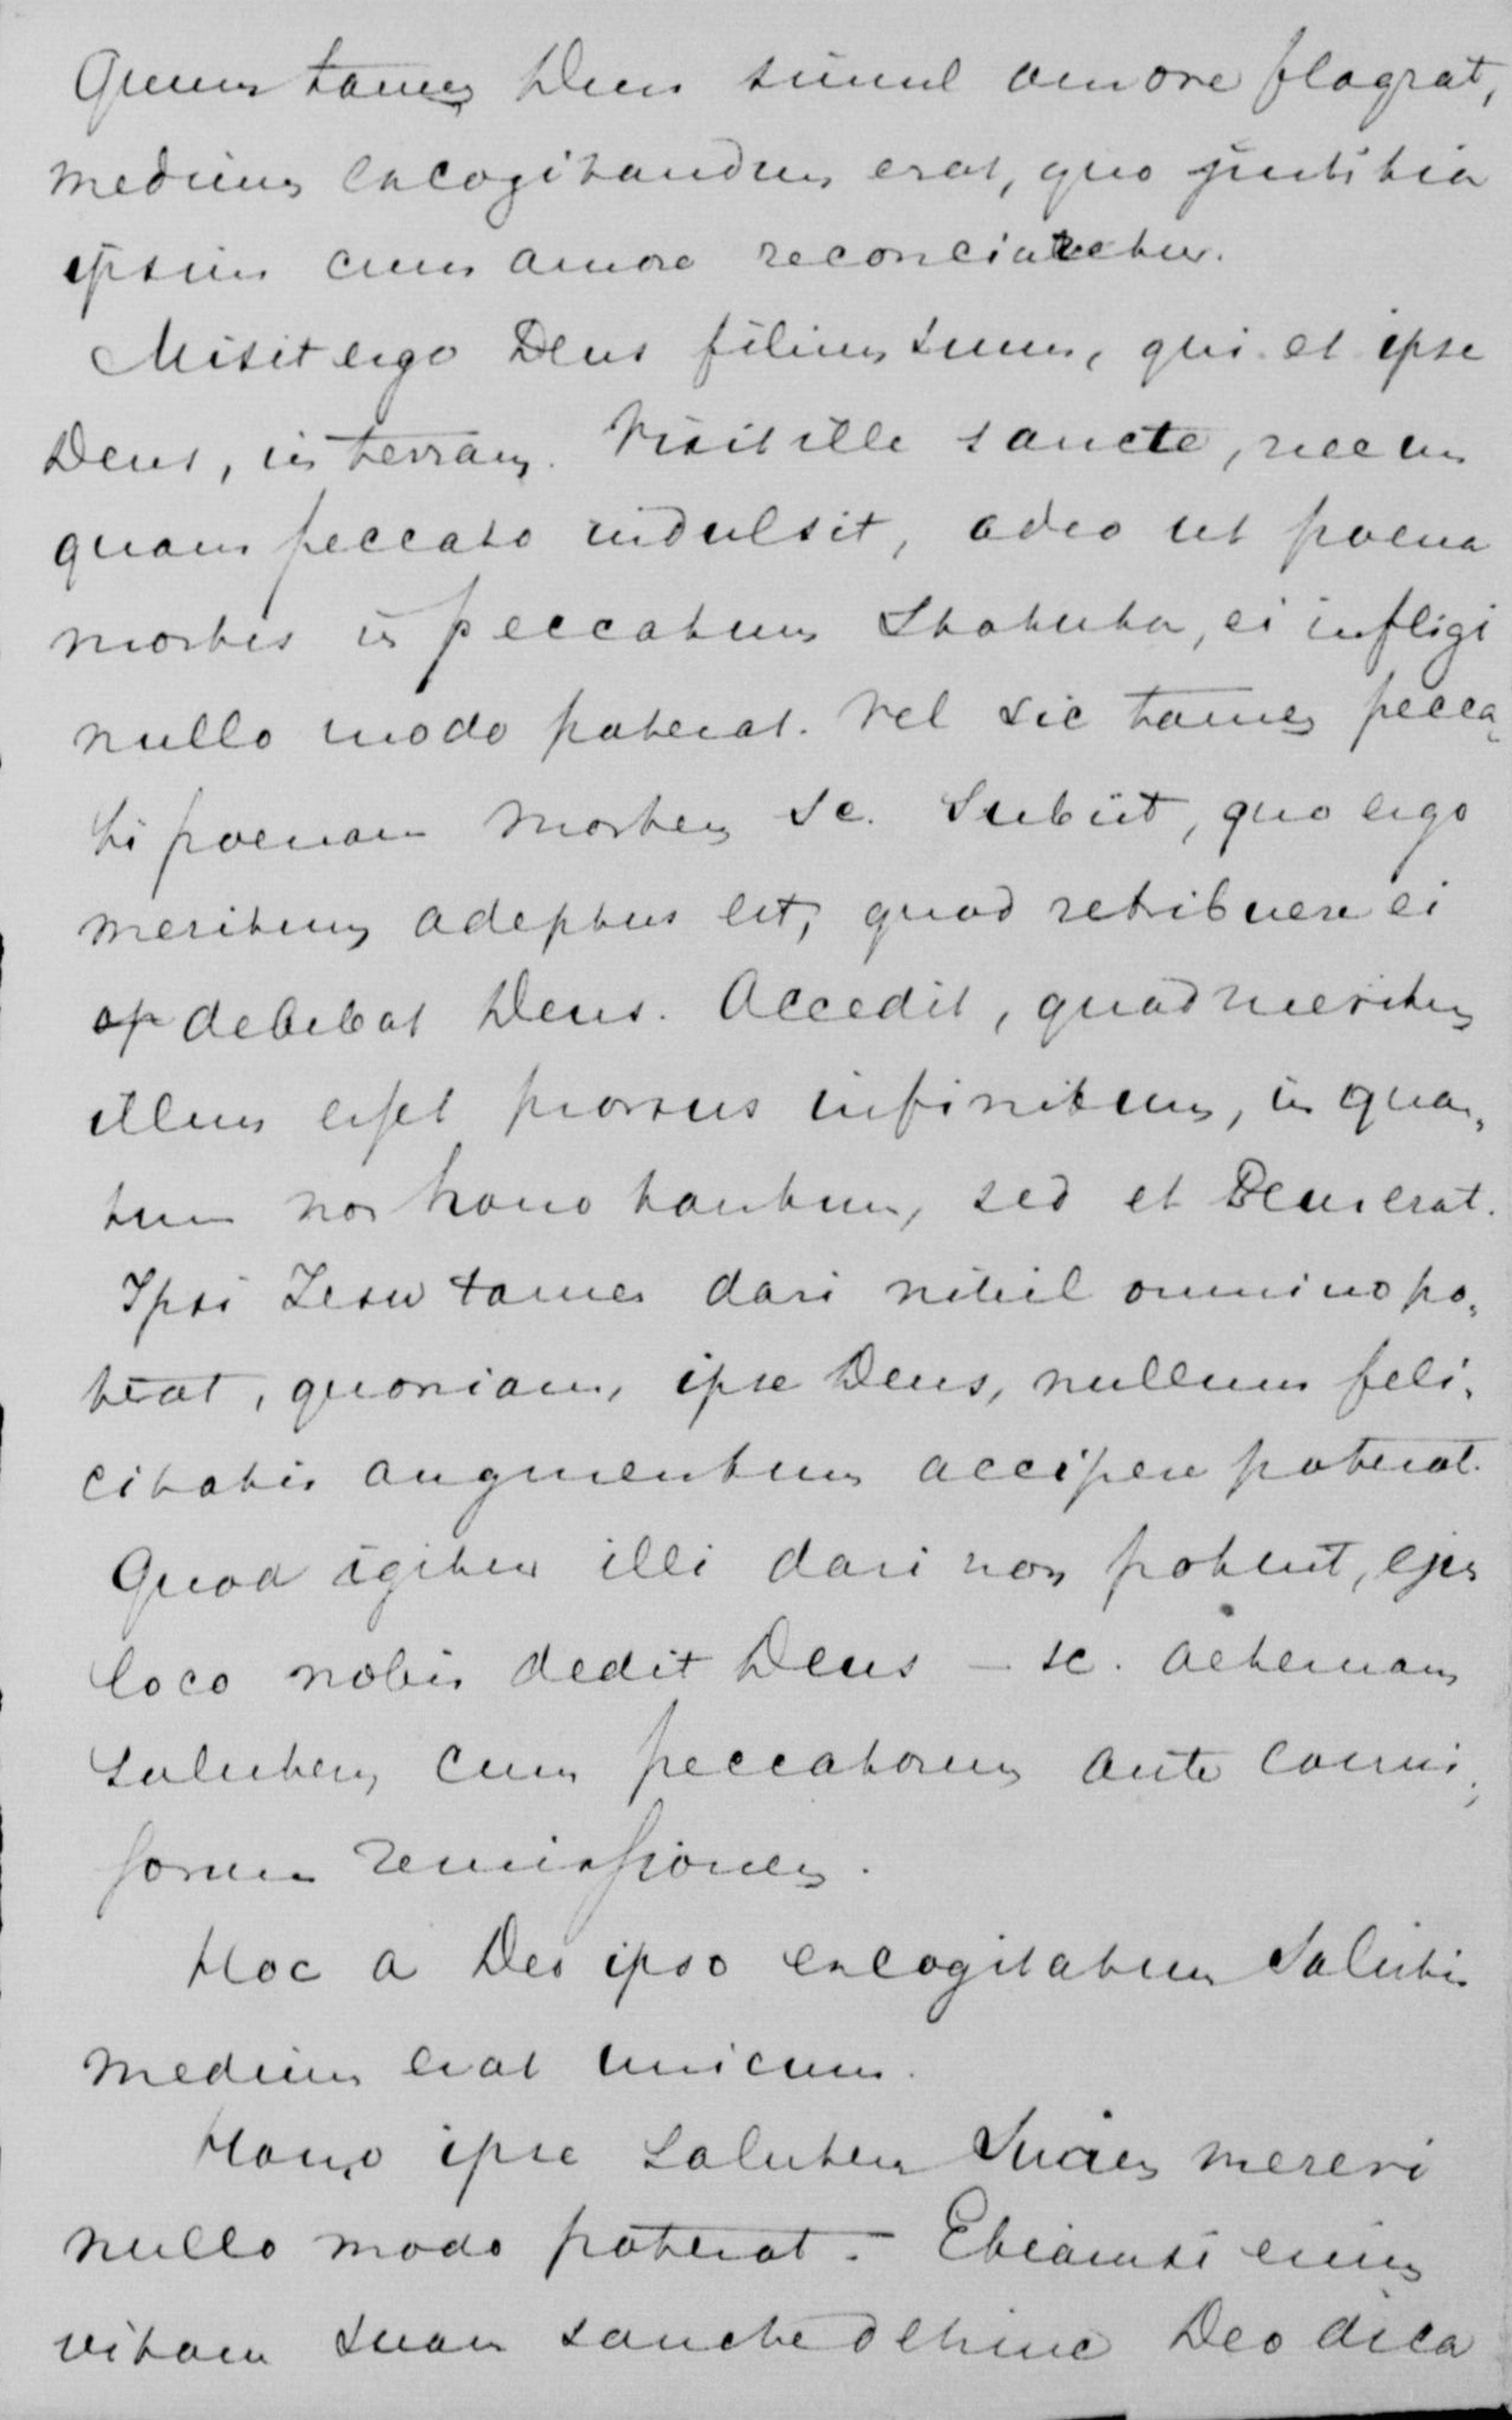 Quum tamen Deus simul amore flagrat,
medium excogitandum erat, quo justitia
ipsius cum amore reconciaretur.
Misit ergo Deus filium suum, qui et ipse
Deus, in terram. Vixit ille sancte, nec un
quam peccato indulsit, adeo ut poena
mortis in peccatum statuta, ei infligi
nullo modo poterat. Vel sic tamen pecca„
ti poenam mortem sc. subiit, quo ergo
meritum adeptus est, quod retribuere ei
op debebat Deus. Accedit, quod meritum
illum esset prorsus infinitum, in quan„
tum non homo tantum, sed et Deus erat.
Ipsi Jesu tamen dari nihil omnino po„
terat, quoniam, ipse Deus, nullum feli„
citatis augmentum accipere poterat.
Quod igitur illi dari non potuit, ejus
loco nobis dedit Deus – sc. aeternam
salutem cum peccatorum ante commis„
sorum remissionem.
Hoc a Deo ipso excogitatum salutis
medium erat unicum.
Homo ipse salutem suam mereri
nullo modo poterat. Etiamsi enim
vitam suam sancte dehinc Deo dica